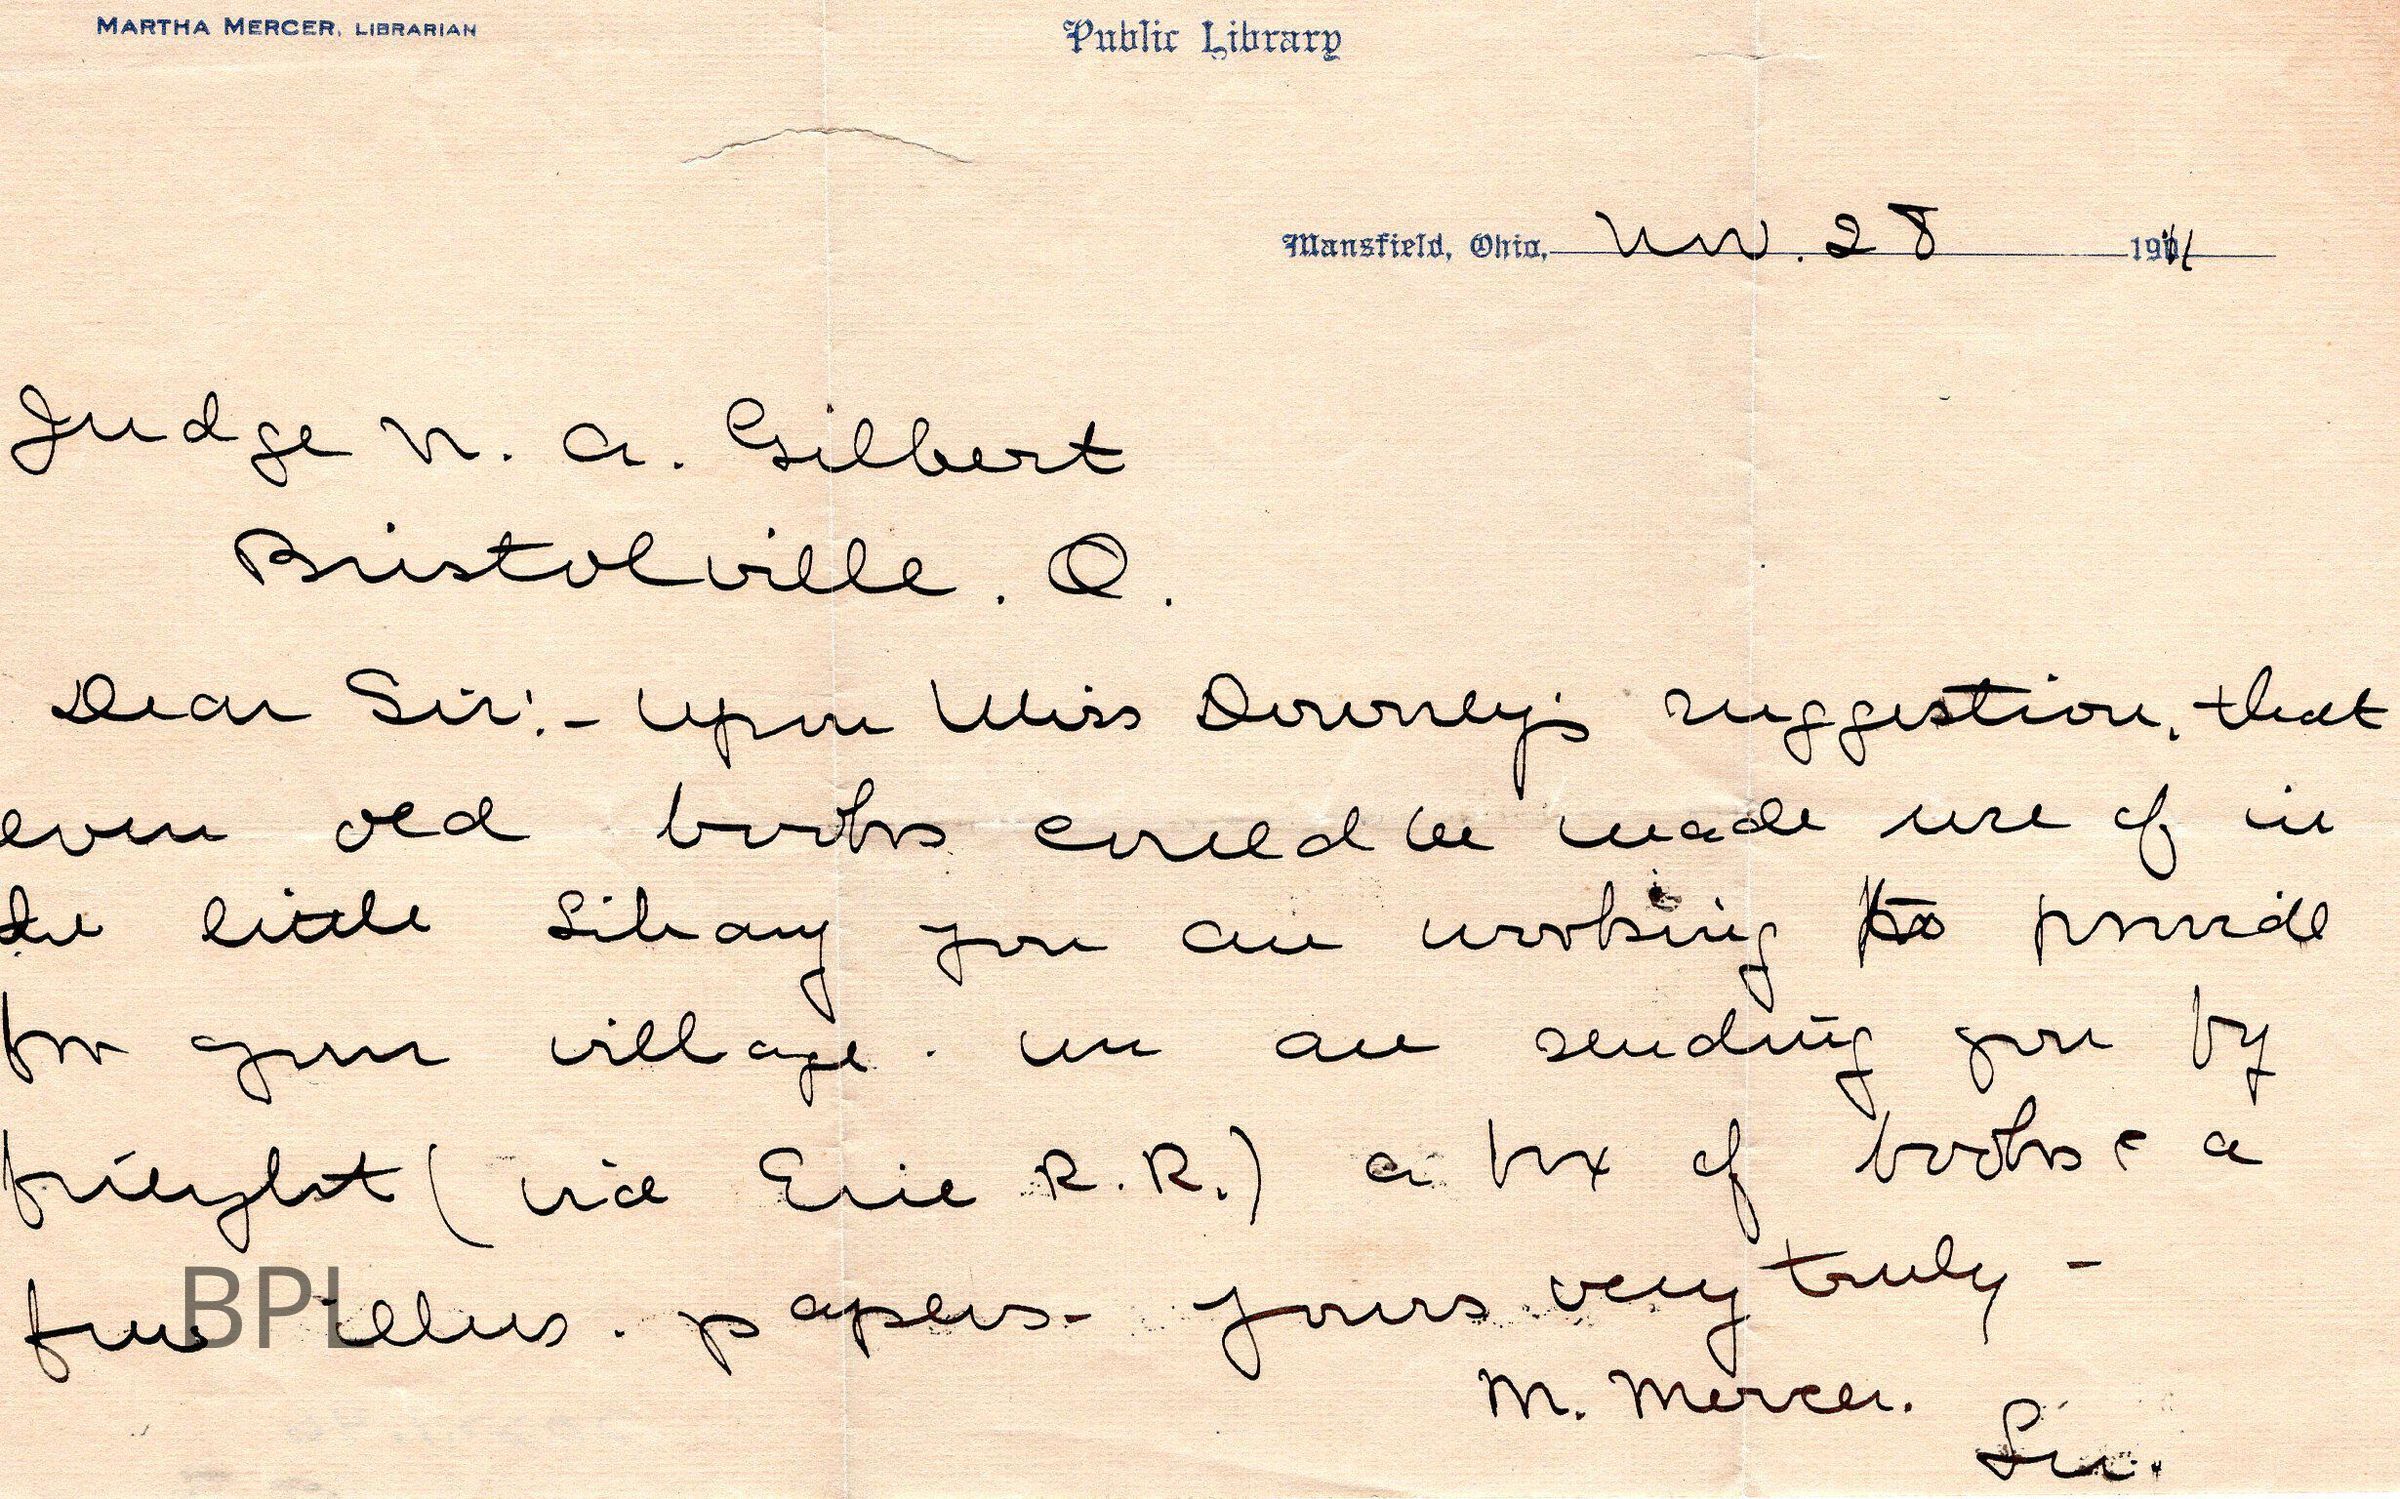 MARTHA MERCER, LIBRARIAN
Public Library
Mansfield, Ohio, Nov. 28 1911
Judge N. A. Gilbert
Bristolville. O.
Dear Sir:- Upon Miss Downey's suggestion, that
even old books could be made use of in
the little Library you are working to provide
for your village. we are sending you by
freight (via Erie R.R.) a box of books & a
few illus. papers- Yours very truly -
M. Mercer.
Lib.
BPL